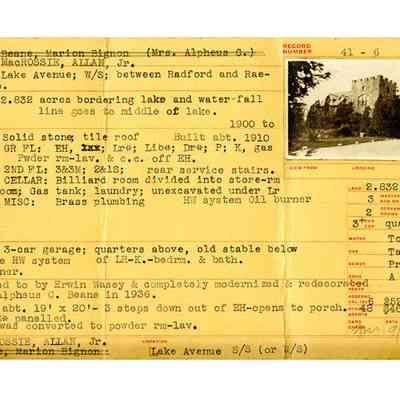 Beane, Marion Bignon (Mrs. Alpheus C.)
MacROSSIE, ALLAN, Jr.
RECORD
NUMBER
41 - 6
Lake Avenue; W/S; between Radford and Rae-
2.832 acres bordering lake and water-fall
line goes to middle of lake.
1900 to
Solid stone; tile roof Built abt. 1910
GR FL: EH, xxx; Lr; Lib; Dr; P; K, gas
Pwder rm-lav. & c.c. off EH.
2ND FL: 3&3M; 2&1S; rear service stairs.
CELLAR: Billiard room divided into store-rm
oom; Gas tank; laundry; unexcavated under Lr
MISC: Brass plumbing HW system Oil burner
3-car garage; quarters above, old stable below
HW system of LR-K.-bedrm. & bath.
ner.
ed to by Erwin Wasey & completely modernized & redecorated
Alpheus C. Beane in 1936.
abt. 19' x 20'- 3 steps down out of EH-opens to porch.
panelled.
was converted to powder rm-lav.
OSSIE, ALLAN, Jr.
e, Marion Bignon
LOCATION
Lake Avenue S/S (or W/S)
VIEW FROM
LOOKING
LAND 2.832
3
2
3+ qua
To
Ta
Pr
A